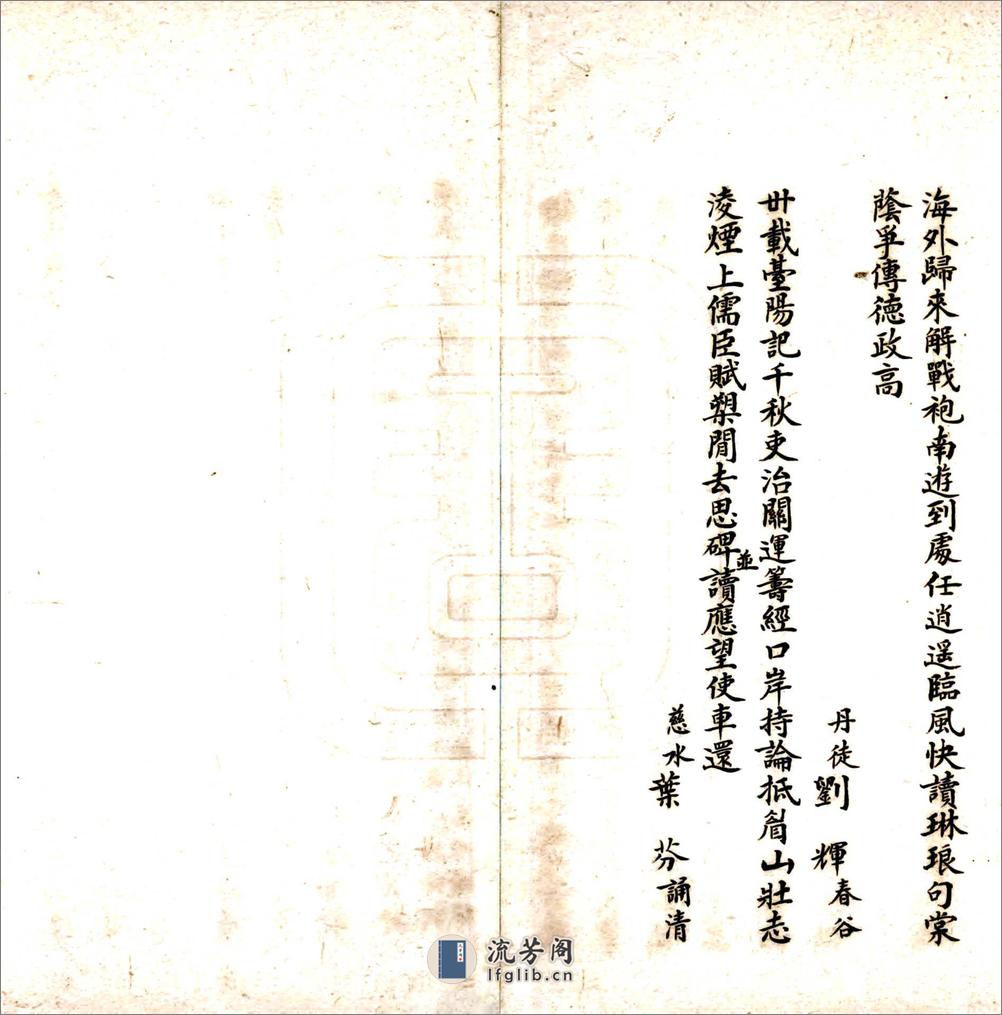 海外歸來解戰袍南遊到處任逍遥臨風快讀琳琅句棠
蔭爭傳德政高
丹徒劉輝春谷
卅載臺陽記千秋吏治關運籌經口岸持論抵眉山壯志
淩煙上儒臣賦槊閒去思碑並讀應望使車還
慈水葉芬誦清
流芳阁
lfglib.cn